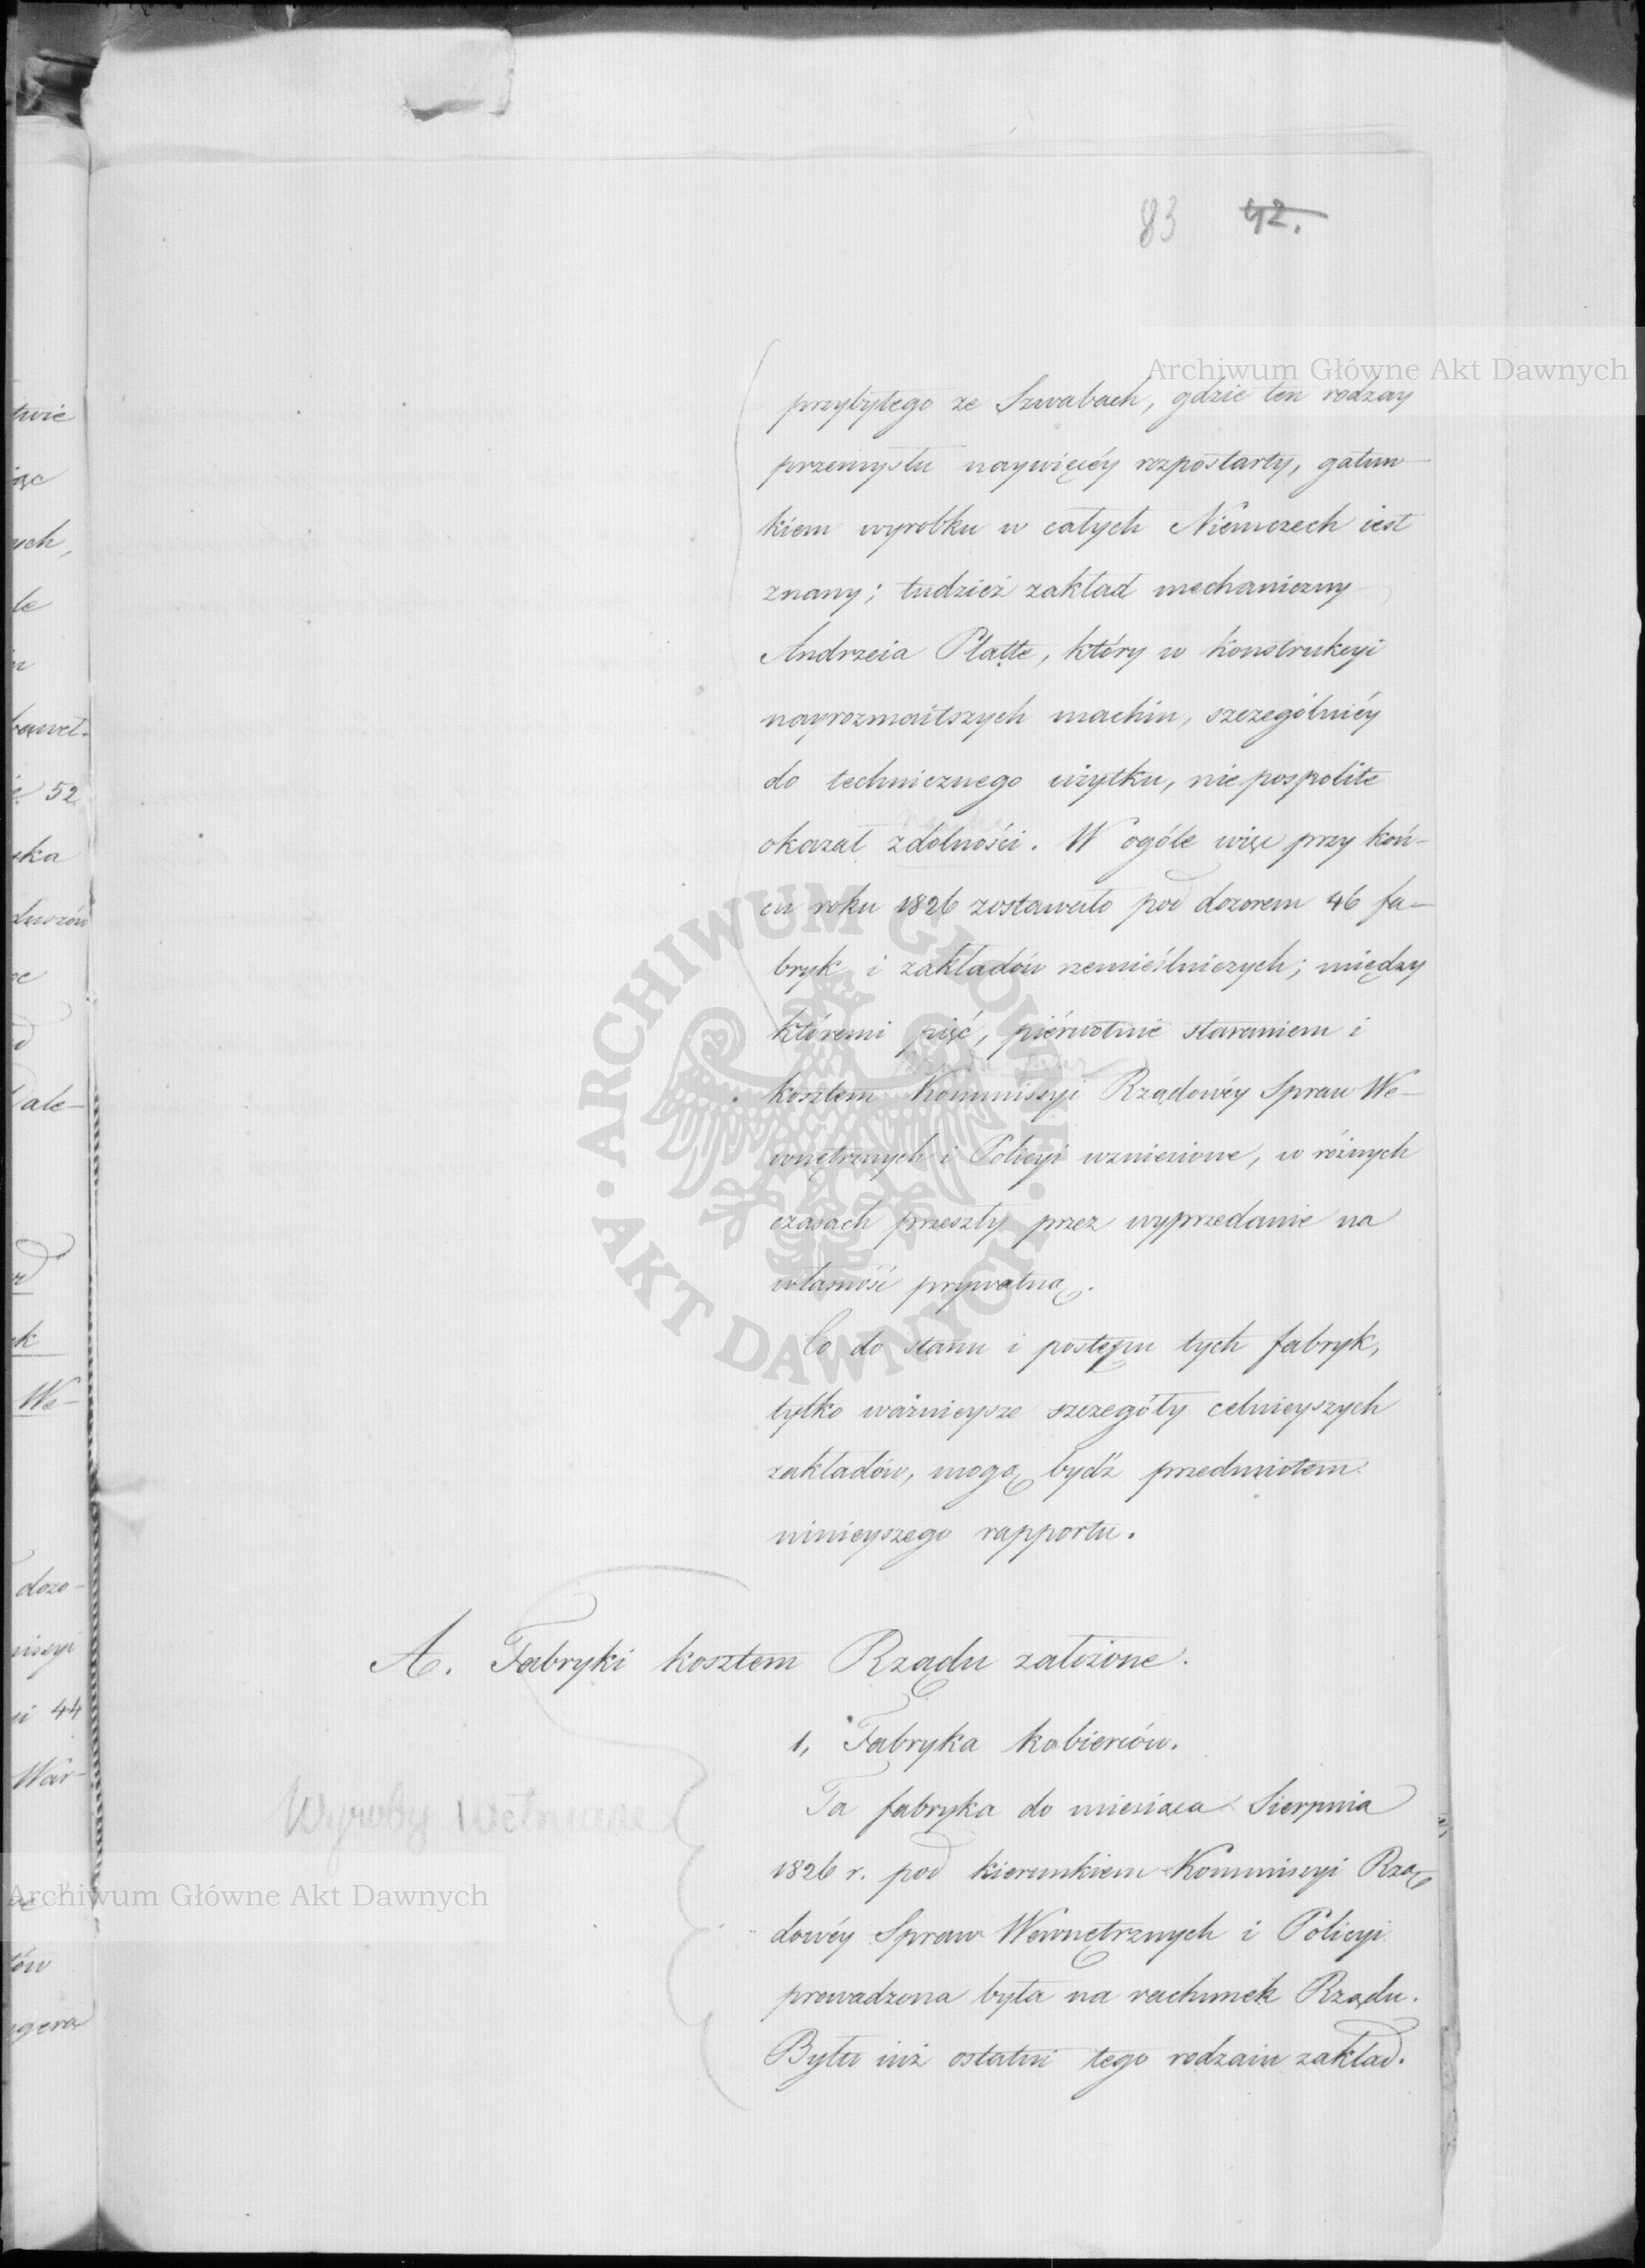 83 42.
Archiwum Główne Akt Dawnych
przybyłego ze Szwabach, gdzie ten rodzay
przemysłu naywięcéy rozpostarty, gatun-
kiem wyrobku w całych Niemczech iest
znany; tudzież zakład mechaniczny
Andrzeia Platte, który w konstrukcyi
nayrozmaitszych machin, szczególniéy
do technicznego użytku, nie pospolite
okazał zdolności. W ogóle więc przy koń-
cu roku 1826 zostawało pod dozorem 46 fa-
bryk i zakładów rzemieślniczych; między
któremi pięć, piérwotnie staraniem i
kosztem Kommissyi Rządowéy Spraw We-
wnętrznych i Policyi wzniesione, w różnych
czasach przeszły przez wyprzedanie na
własność prywatną.
Co do stanu i postępu tych fabryk,
tylko ważnieysze szczegóły celnieyszych
zakładów, mogą bydź przedmiotem
ninieyszego rapportu.
A. Fabryki kosztem Rządu założone.
1, Fabryka kobierców.
Ta fabryka do miesiąca Sierpnia
Wyroby Wełniane
1826 r. pod kierunkiem Kommissyi Rzą
dowéy Spraw Wewnętrznych i Policyi
prowadzona była na rachunek Rządu.
Był to iuż ostatni tego rodzaiu zakład.
Archiwum Główne Akt Dawnych
ARCHIWUM GŁÓWNE
AKT DAWNYCH
twie
ych,
le
baweł-
52
Pale-
We-
dozo-
44
War-